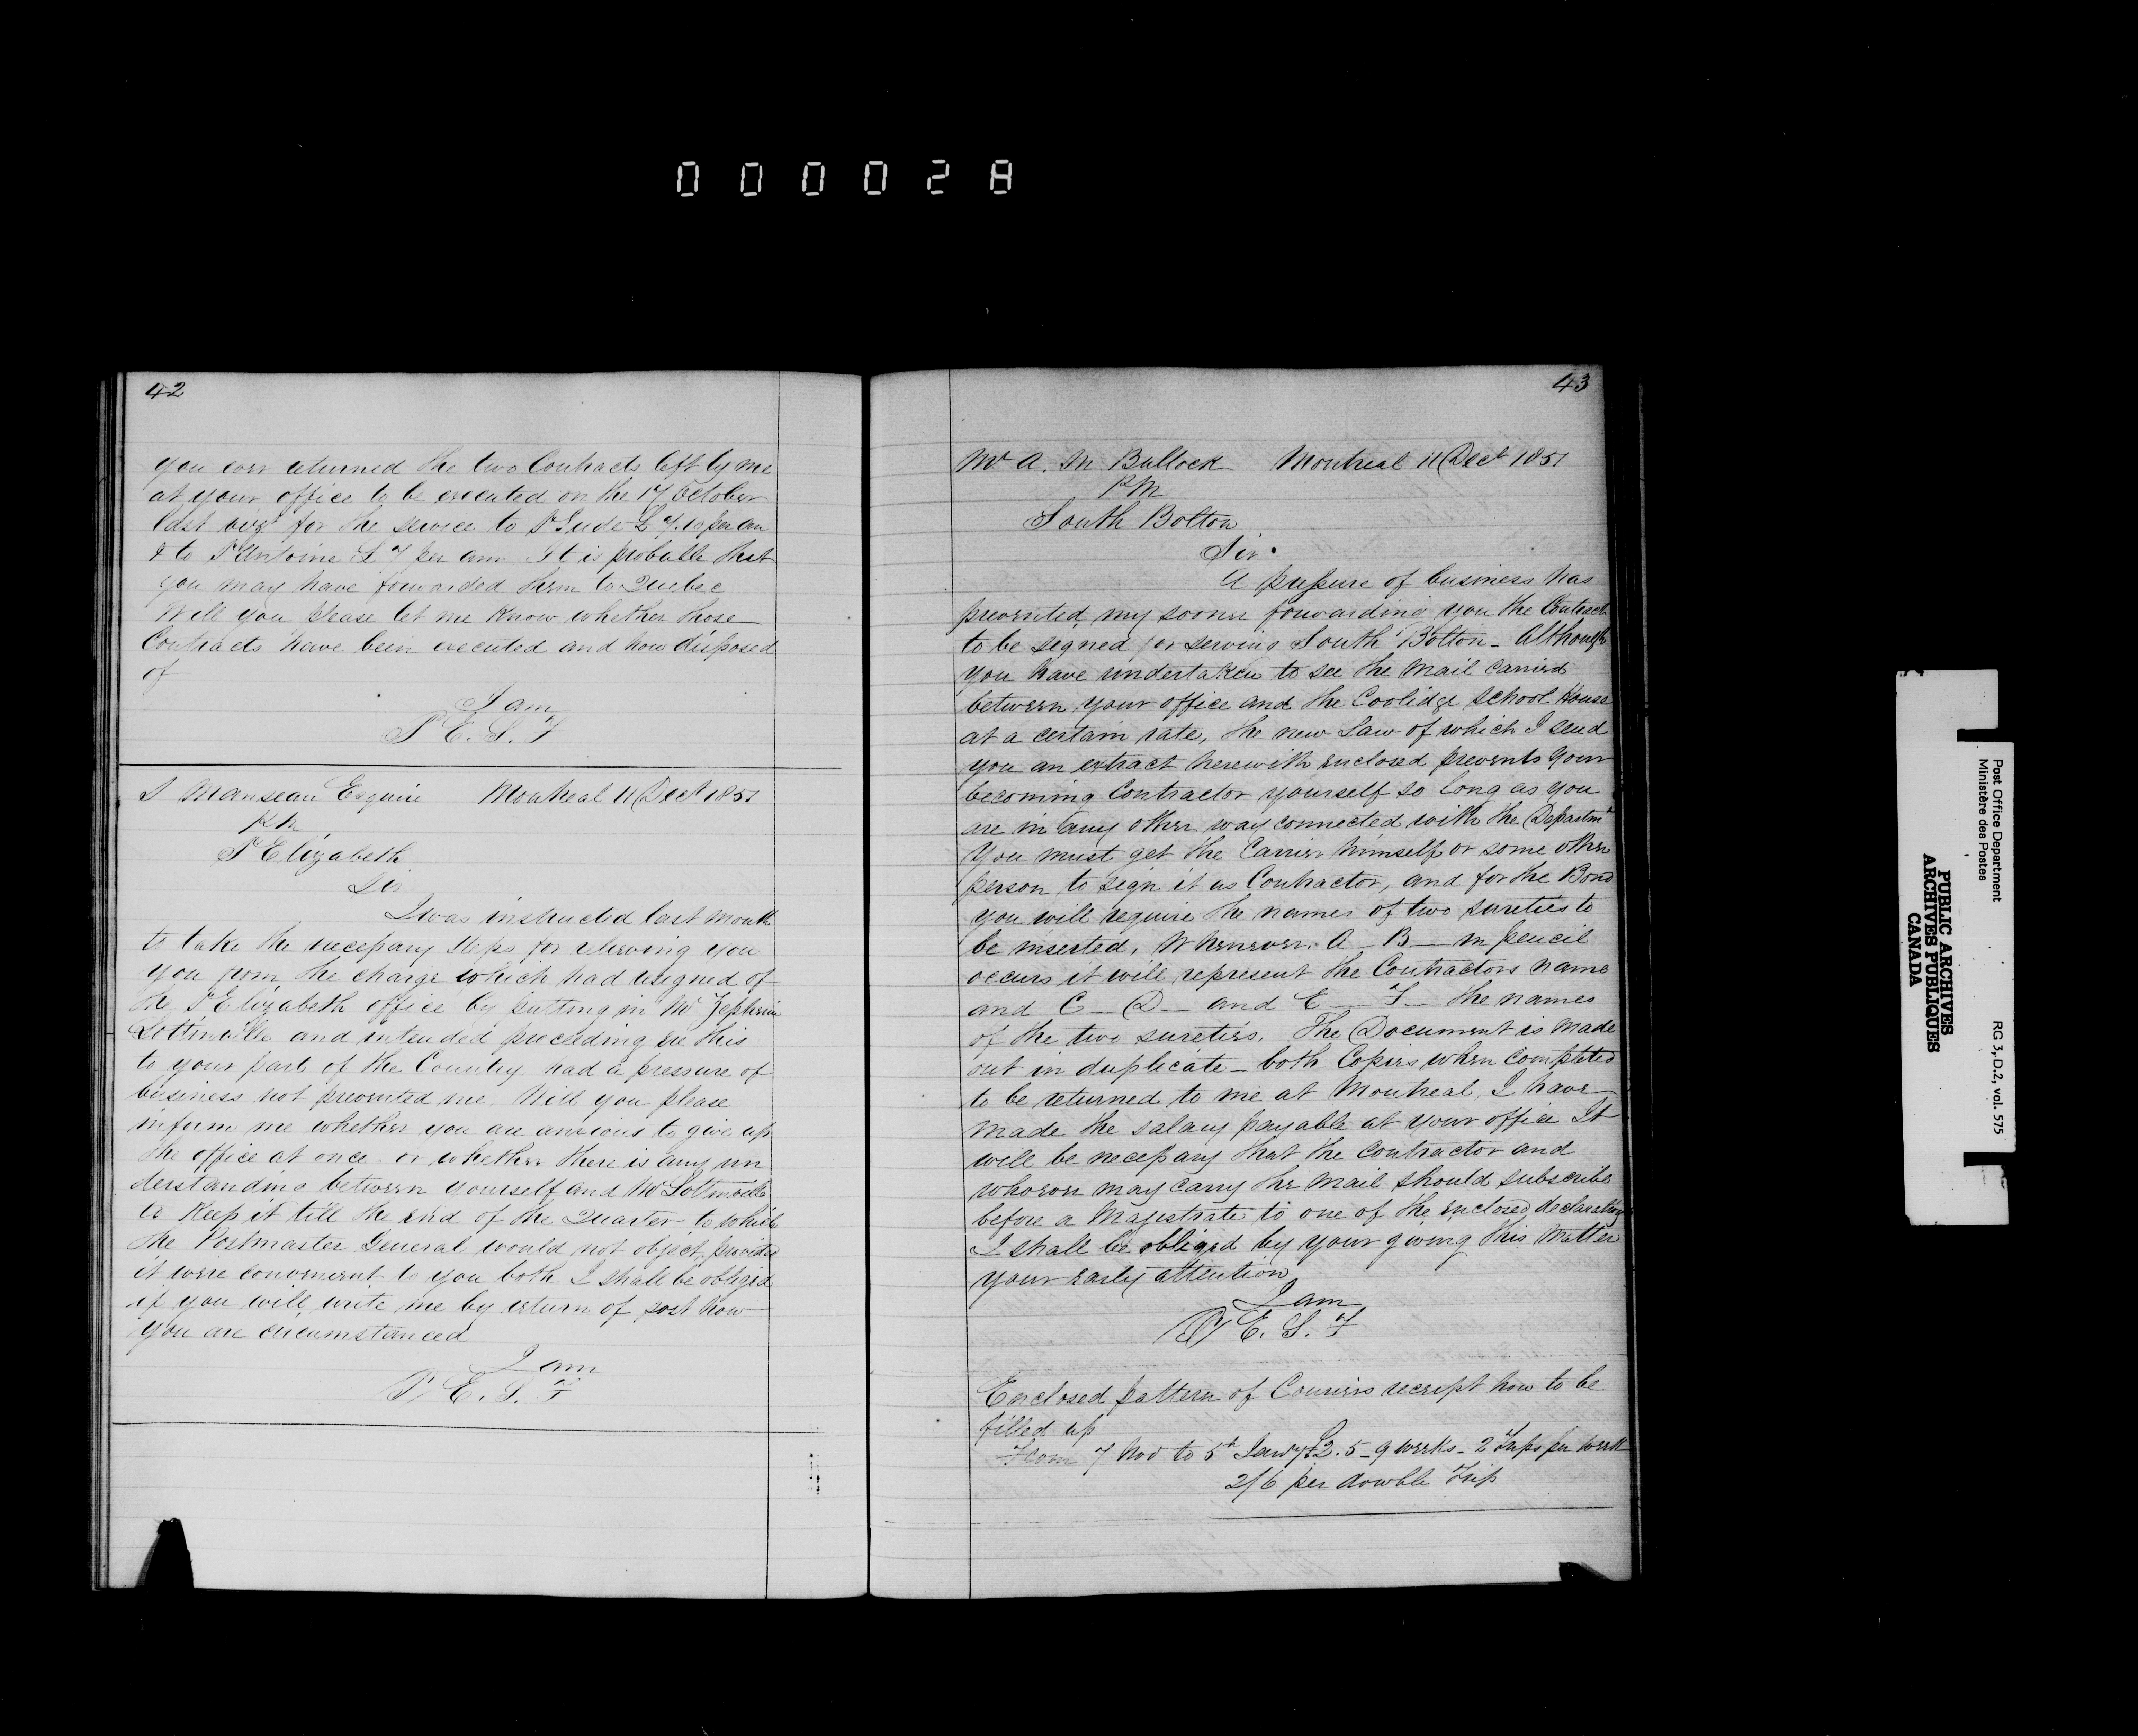 000028
42
you ever returned the two Contracts left by me
at your office to be executed on the 17 October
last vizt for the service to St Jude £7.10 per an
& to St Antoine £7 per ann. It is probable that
you may have forwarded them to Quebec
Will you please let me know whether those
Contracts have been executed and how disposed
of
I am
P E. S. F
I Manseau Esquire Montreal 11 Dect 1851
PM
St Elizabeth
Sir
I was instructed last month
to take the necessary steps for relieving you
you from the charge which had resigned of
the St Elizabeth office by putting in Mr Zephirin
Lottinville and intended proceeding on this
to your part of the Country had a pressure of
business not prevented me. Will you please
inform me whether you are anxious to give up
the office at once or whether there is any un
derstanding between yourself and Mr Lottinville
to keep it till the end of the Quarter to which
the Postmaster General would not object, provided
it were convenient to you both I shall be obliged
if you will write me by return of post how
you are circumstanced
I am
P, E. S. F
43
Mr A. M Bullock Montreal 11 Dect 1851
PM
South Bolton
Sir.
A pressure of business has
prevented my sooner forwarding you the Contract
to be signed for serving South Bolton - Although
you have undertaken to see the Mail carried
between your office and the Coolidge School House
at a certain rate, the new Law of which I send
you an extract herewith enclosed prevents your
becoming Contractor yourself so long as you
are in any other way connected with the Departmt
You must get the Carrier himself or some other
person to sign it as Contractor, and for the Bond
you will require the names of two sureties to
be inserted, Whenever. A - B - in pencil
occurs it will represent the Contractors name
and C - D - and E - F - the names
of the two sureties. The Document is made
out in duplicate - both Copies when completed
to be returned to me at Montreal, I have
made the salary payable at your office It
will be necessary that the Contractor and
whoever may carry the Mail should subscribe
before a Magistrate to one of the enclosed declarations
I shall be obliged by your giving this Matter
your early attention
I am
P E. S. F
Enclosed pattern of Couriers receipt how to be
filled up
From 7 Nov to 5th Jany £2.5 - 9 weeks - 2 Trips per week
2/6 per double Trip
Post Office Department
Ministère des Postes
RG 3, D.2, vol. 575
PUBLIC ARCHIVES
ARCHIVES PUBLIQUES
CANADA